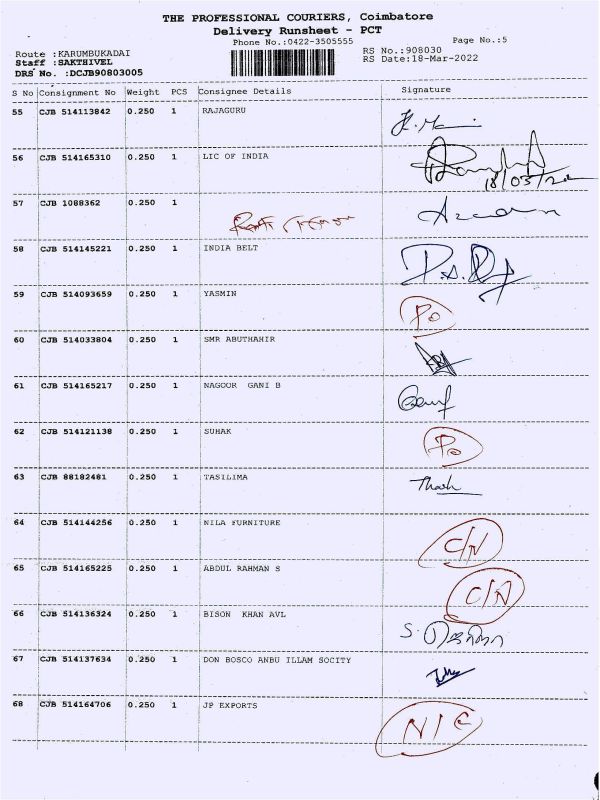 THE PROFESSIONAL COURIERS, Coimbatore
Delivery Runsheet - PCT
Phone No.:0422-3505555 Page No.:5
Route :KARUMBUKADAI RS No.:908030
Staff :SAKTHIVEL RS Date:18-Mar-2022
DRS No. :DCJB90803005
S No Consignment No Weight PCS Consignee Details Signature
55 CJB 514113842 0.250 1 RAJAGURU
56 CJB 514165310 0.250 1 LIC OF INDIA
18/03/22
57 CJB 1088362 0.250 1
58 CJB 514145221 0.250 1 INDIA BELT
59 CJB 514093659 0.250 1 YASMIN Po
60 CJB 514033804 0.250 1 SMR ABUTHAHIR
61 CJB 514165217 0.250 1 NAGOOR GANI B
62 CJB 514121138 0.250 1 SUHAK Po
63 CJB 88182481 0.250 1 TASILIMA
64 CJB 514144256 0.250 1 NILA FURNITURE C/N
65 CJB 514165225 0.250 1 ABDUL RAHMAN S C/N
66 CJB 514136324 0.250 1 BISON KHAN AVL
67 CJB 514137634 0.250 1 DON BOSCO ANBU ILLAM SOCITY
68 CJB 514164706 0.250 1 JP EXPORTS N/C